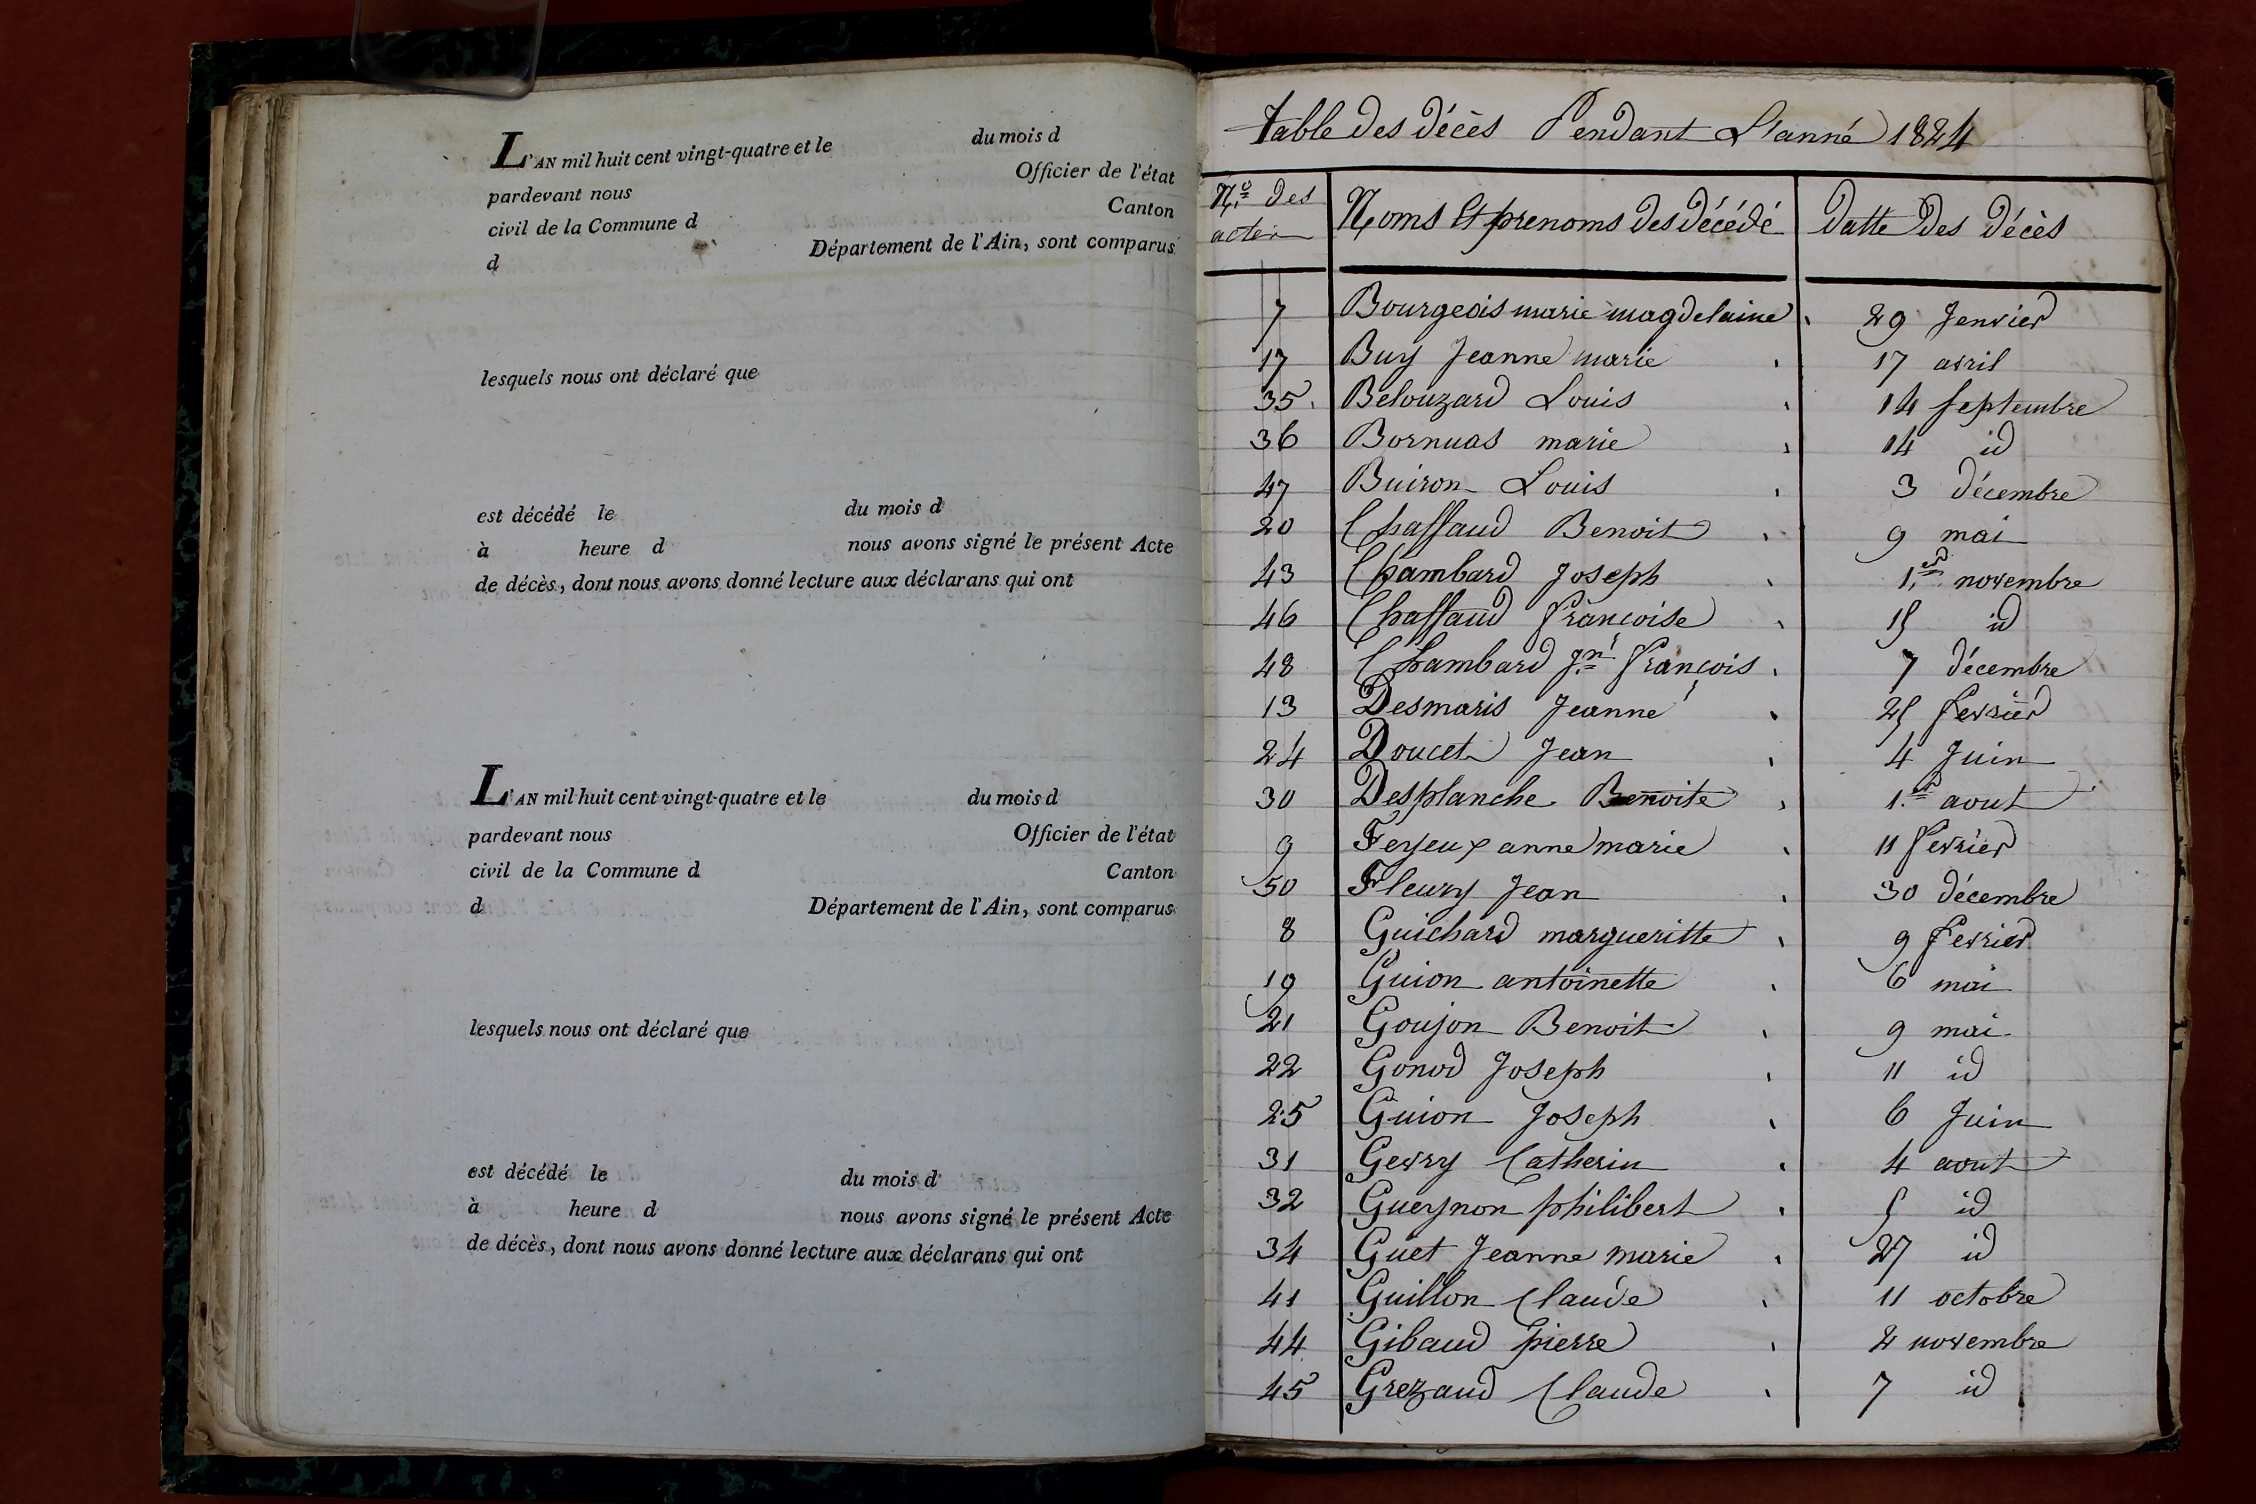 L'AN mil huit cent vingt-quatre et le du mois d
pardevant nous Officier de l'état
civil de la Commune d Canton
d Département de l'Ain, sont comparus
lesquels nous ont déclaré que
est décédé le du mois d
à heure d nous avons signé le présent Acte
de décès, dont nous avons donné lecture aux déclarans qui ont
L'AN mil huit cent vingt-quatre et le du mois d
pardevant nous Officier de l'état
civil de la Commune d Canton
d Département de l'Ain, sont comparus
lesquels nous ont déclaré que
est décédé le du mois d
à heure d nous avons signé le présent Acte
de décès, dont nous avons donné lecture aux déclarans qui ont
table des décès Pendant L'anné 1824
N.o des actes Noms Et prenoms des décédé datte des décès
7 Bourgeois marie magdelaine 29 Jenvier
17 Buy Jeanne marie 17 avril
35 Belouzard Louis 14 septembre
36 Bornuas marie 14 id
47 Buiron Louis 3 décembre
20 Chaffaud Benoit 9 mai
43 Chambard Joseph 1.er novembre
46 Chaffaud Françoise 15 id
48 Chambard Jn François 7 décembre
13 Desmaris Jeanne 25 fevrier
24 Doucet Jean 4 Juin
30 Desplanche Benoite 1.er aout
9 Feyeux anne marie 11 fevrier
50 Fleury Jean 30 décembre
8 Guichard margueritte 9 fevrier
19 Guion antoinette 6 mai
21 Goujon Benoit 9 mai
22 Gonod Joseph 11 id
25 Guion Joseph 6 Juin
31 Gevry Catherin 4 aout
32 Gueynon philibert 5 id
34 Guet Jeanne marie 27 id
41 Guillon Claude 11 octobre
44 Gibaud pierre 2 novembre
45 Grezaud Claude 7 id